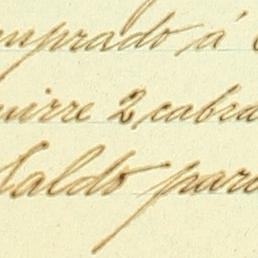 mprado á
uirre 2 cabra
Saldo para